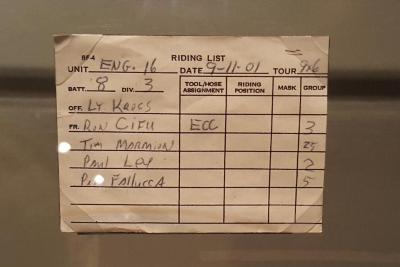 BF-4 RIDING LIST
UNIT ENG. 16 DATE 9-11-01 TOUR 9x6
BATT. 8 DIV. 3 TOOL/HOSE ASSIGNMENT RIDING POSITION MASK GROUP
OFF. LT
FR. RON CIFU ECC 3
TIM MARMION 25
PAUL 2
FALLUCCA 5